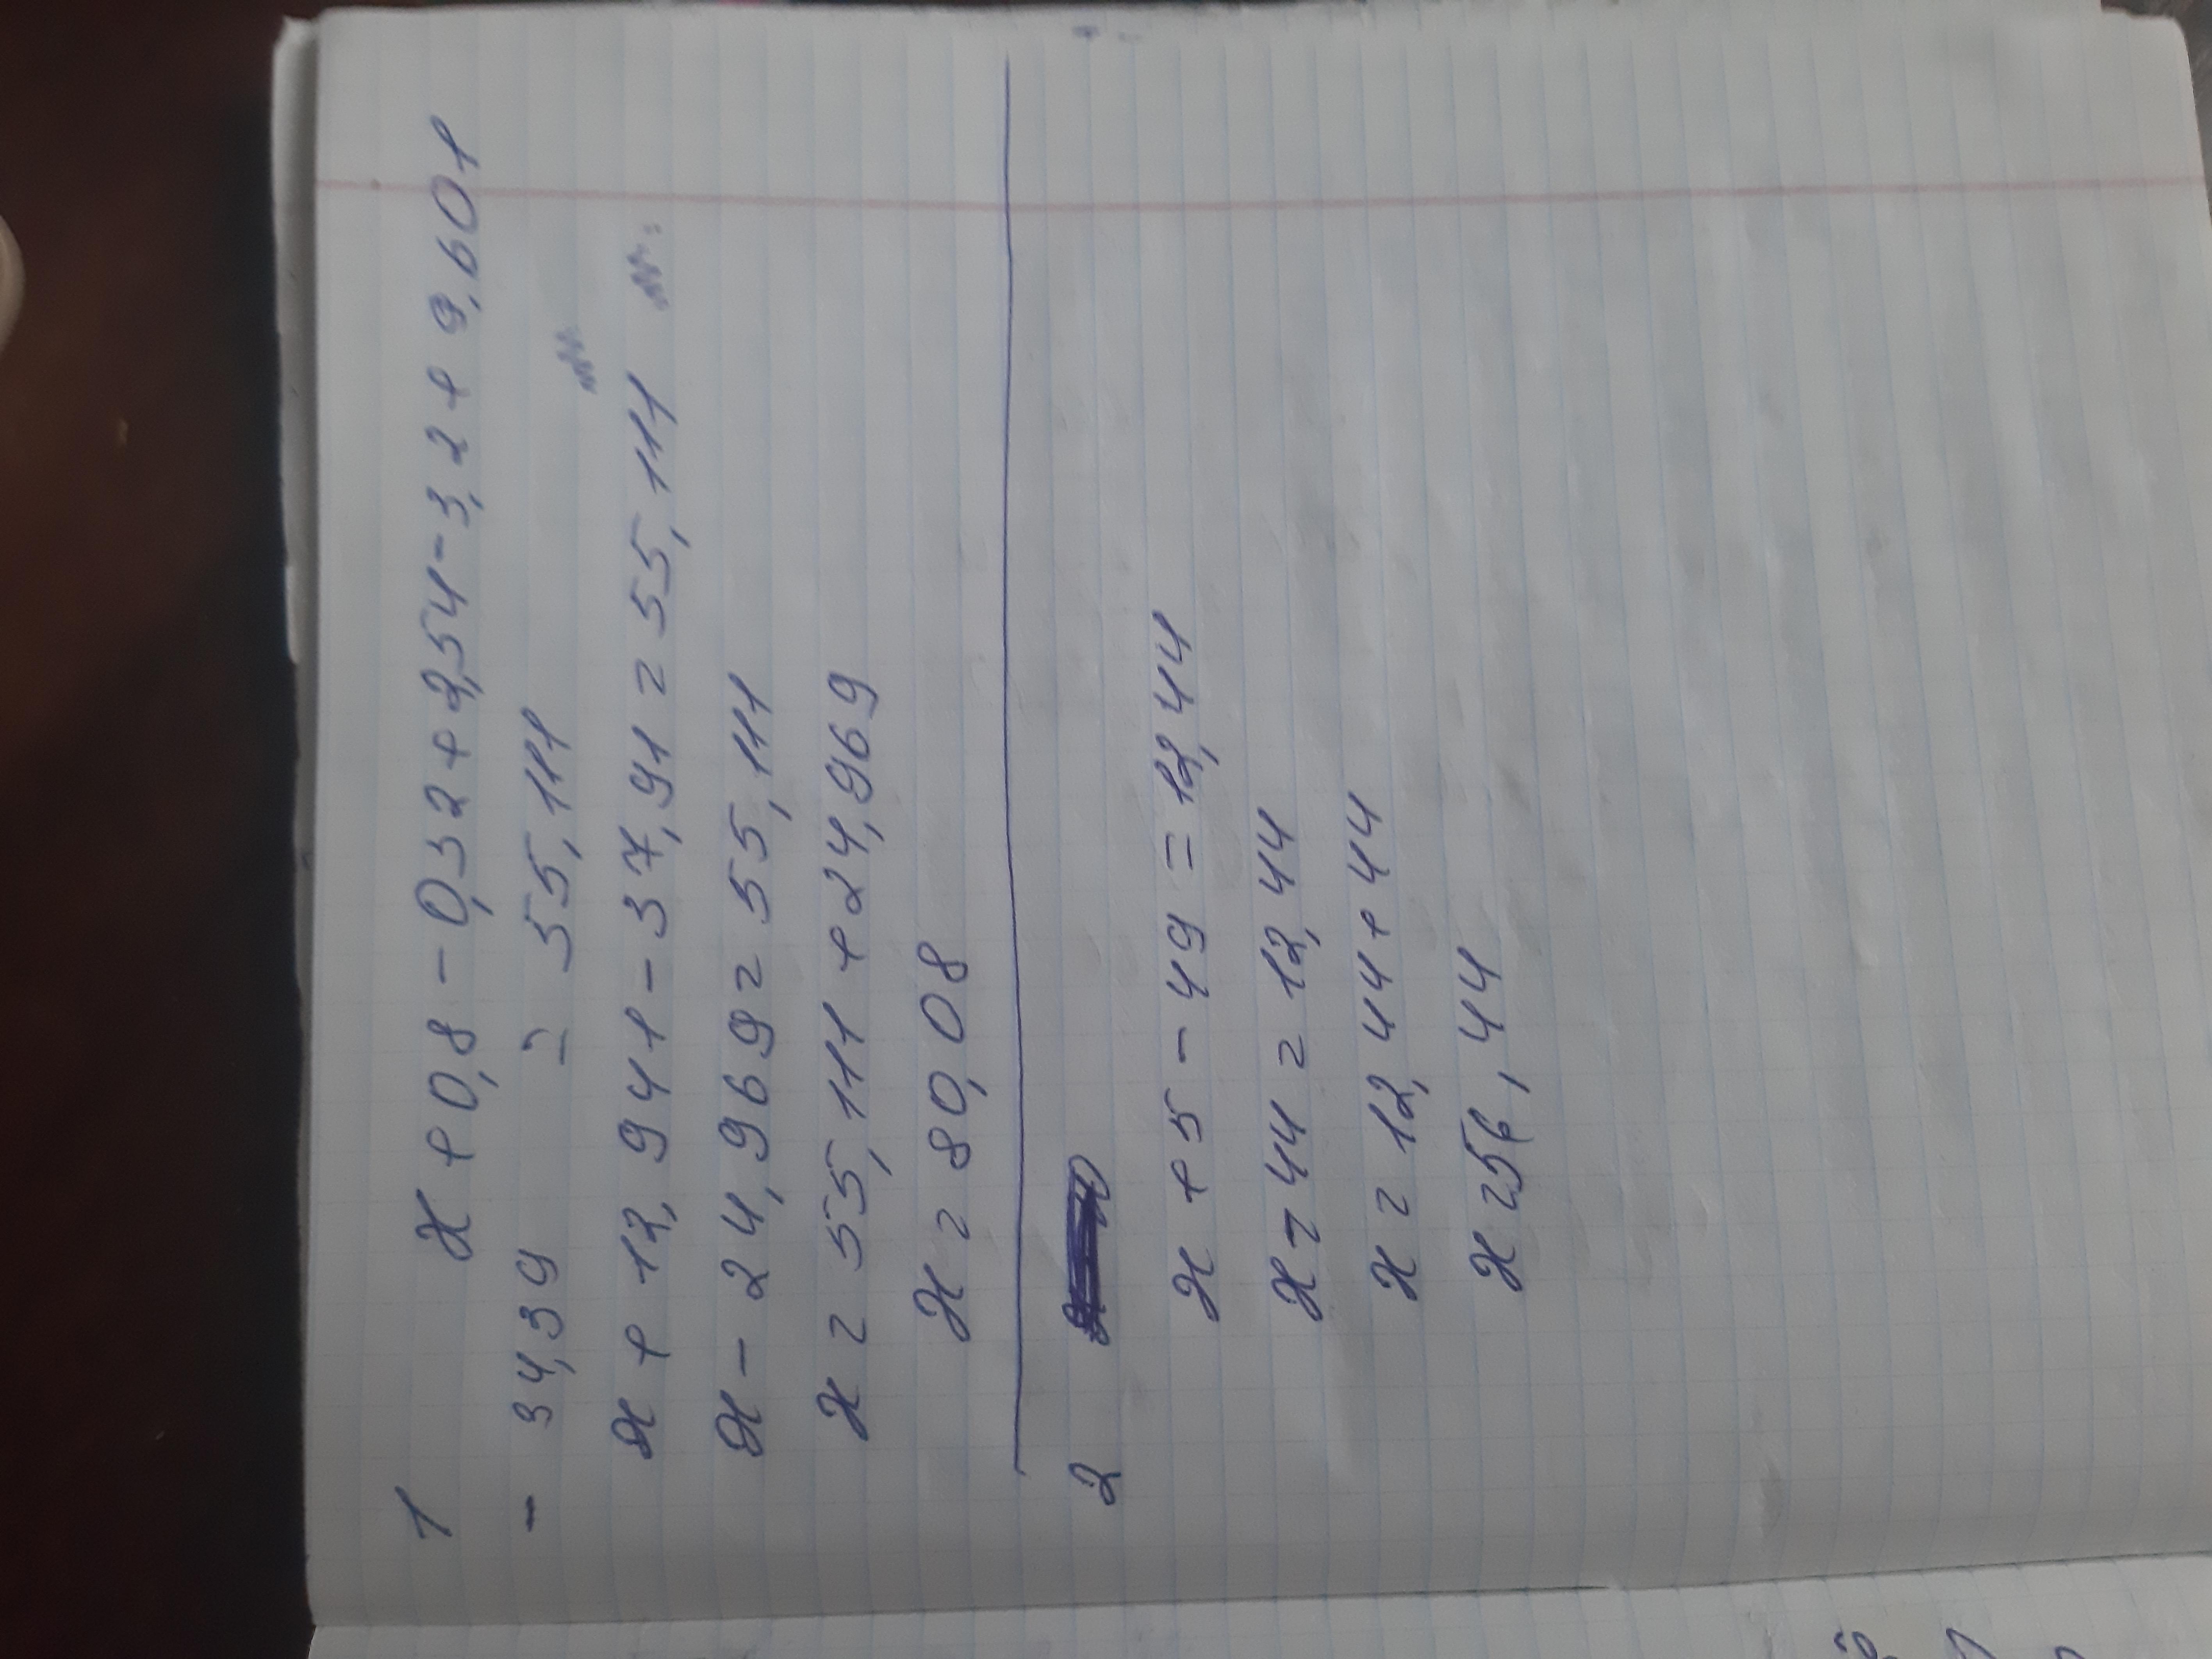 1
x + 0,8 - 0,32 + 2,54 - 3,2 + 9,601
- 34,39 = 55,111
x + 12,941 - 37,91 = 55,111
x - 24,969 = 55,111
x = 55,111 + 24,969
x = 80,08
2
x + 5 - 49 = 12,44
x - 44 = 12,44
x = 12,44 + 44
x = 56,44